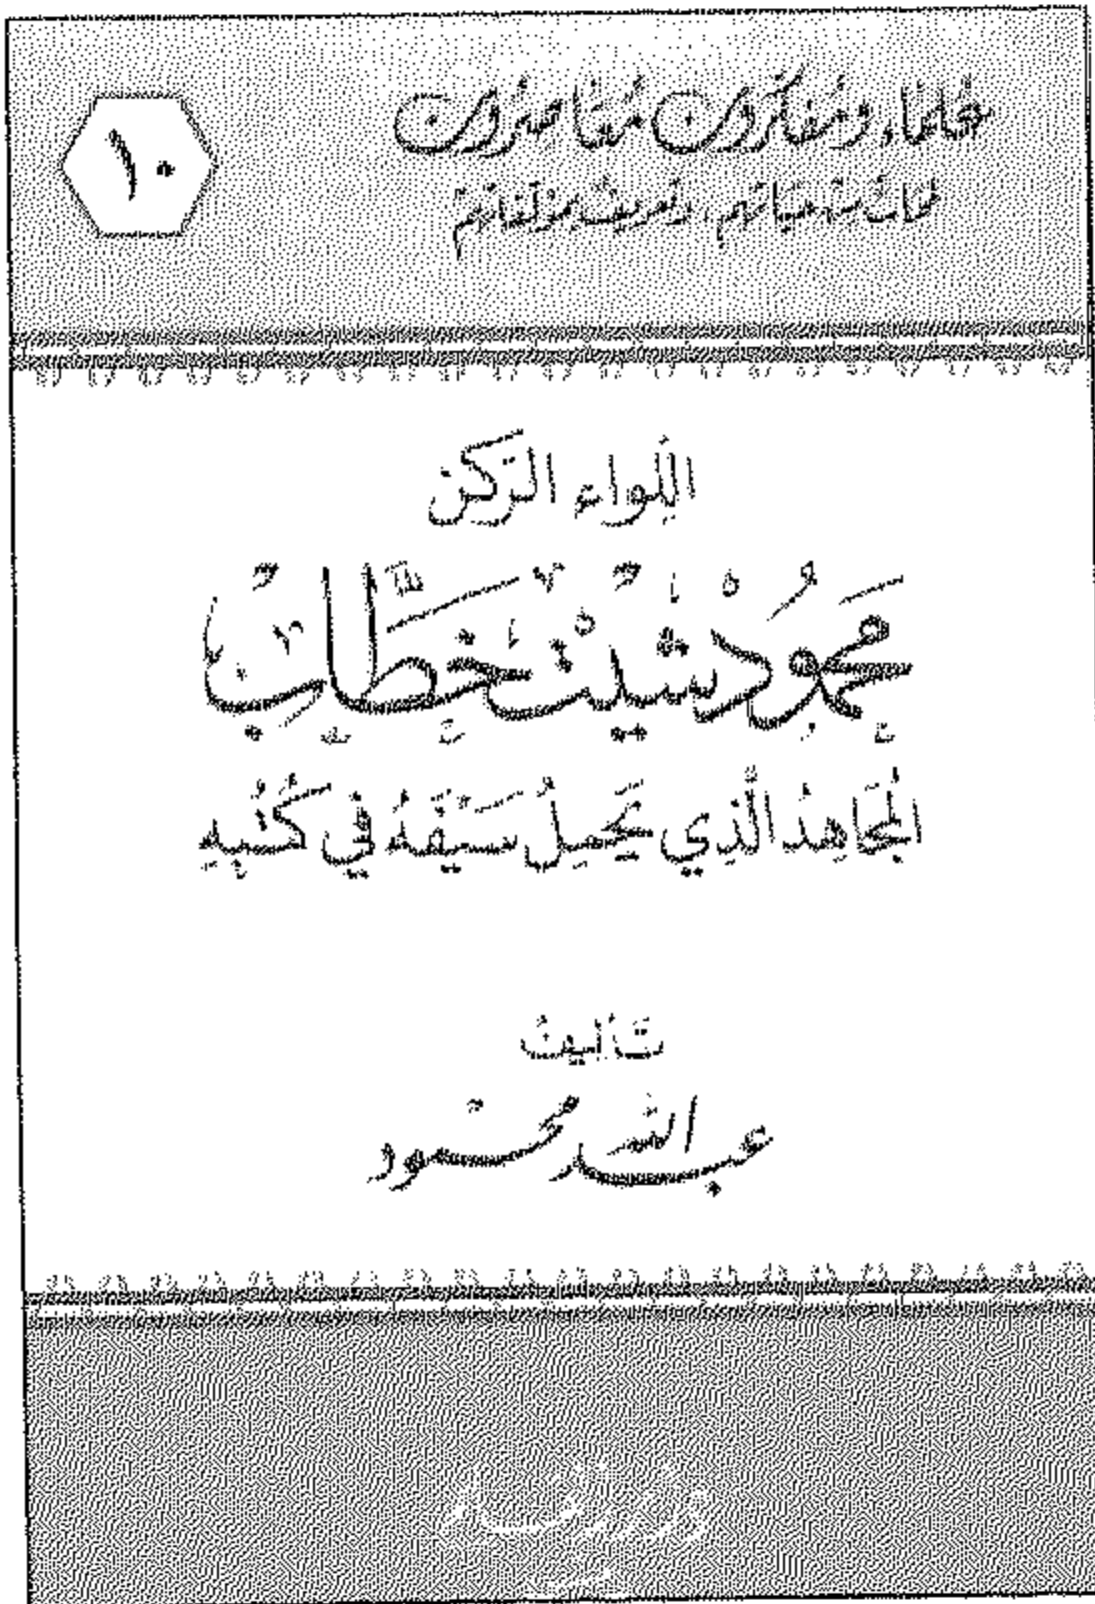 علماء ومفكرون معاصرون
لمحات من حياتهم، وتعريف بمؤلفاتهم
١٠
اللواء الركن
محمود شيت خطاب
المجاهد الذي يحمل سيفه في كتبه
تأليف
عبد الله محمود
دار القلم